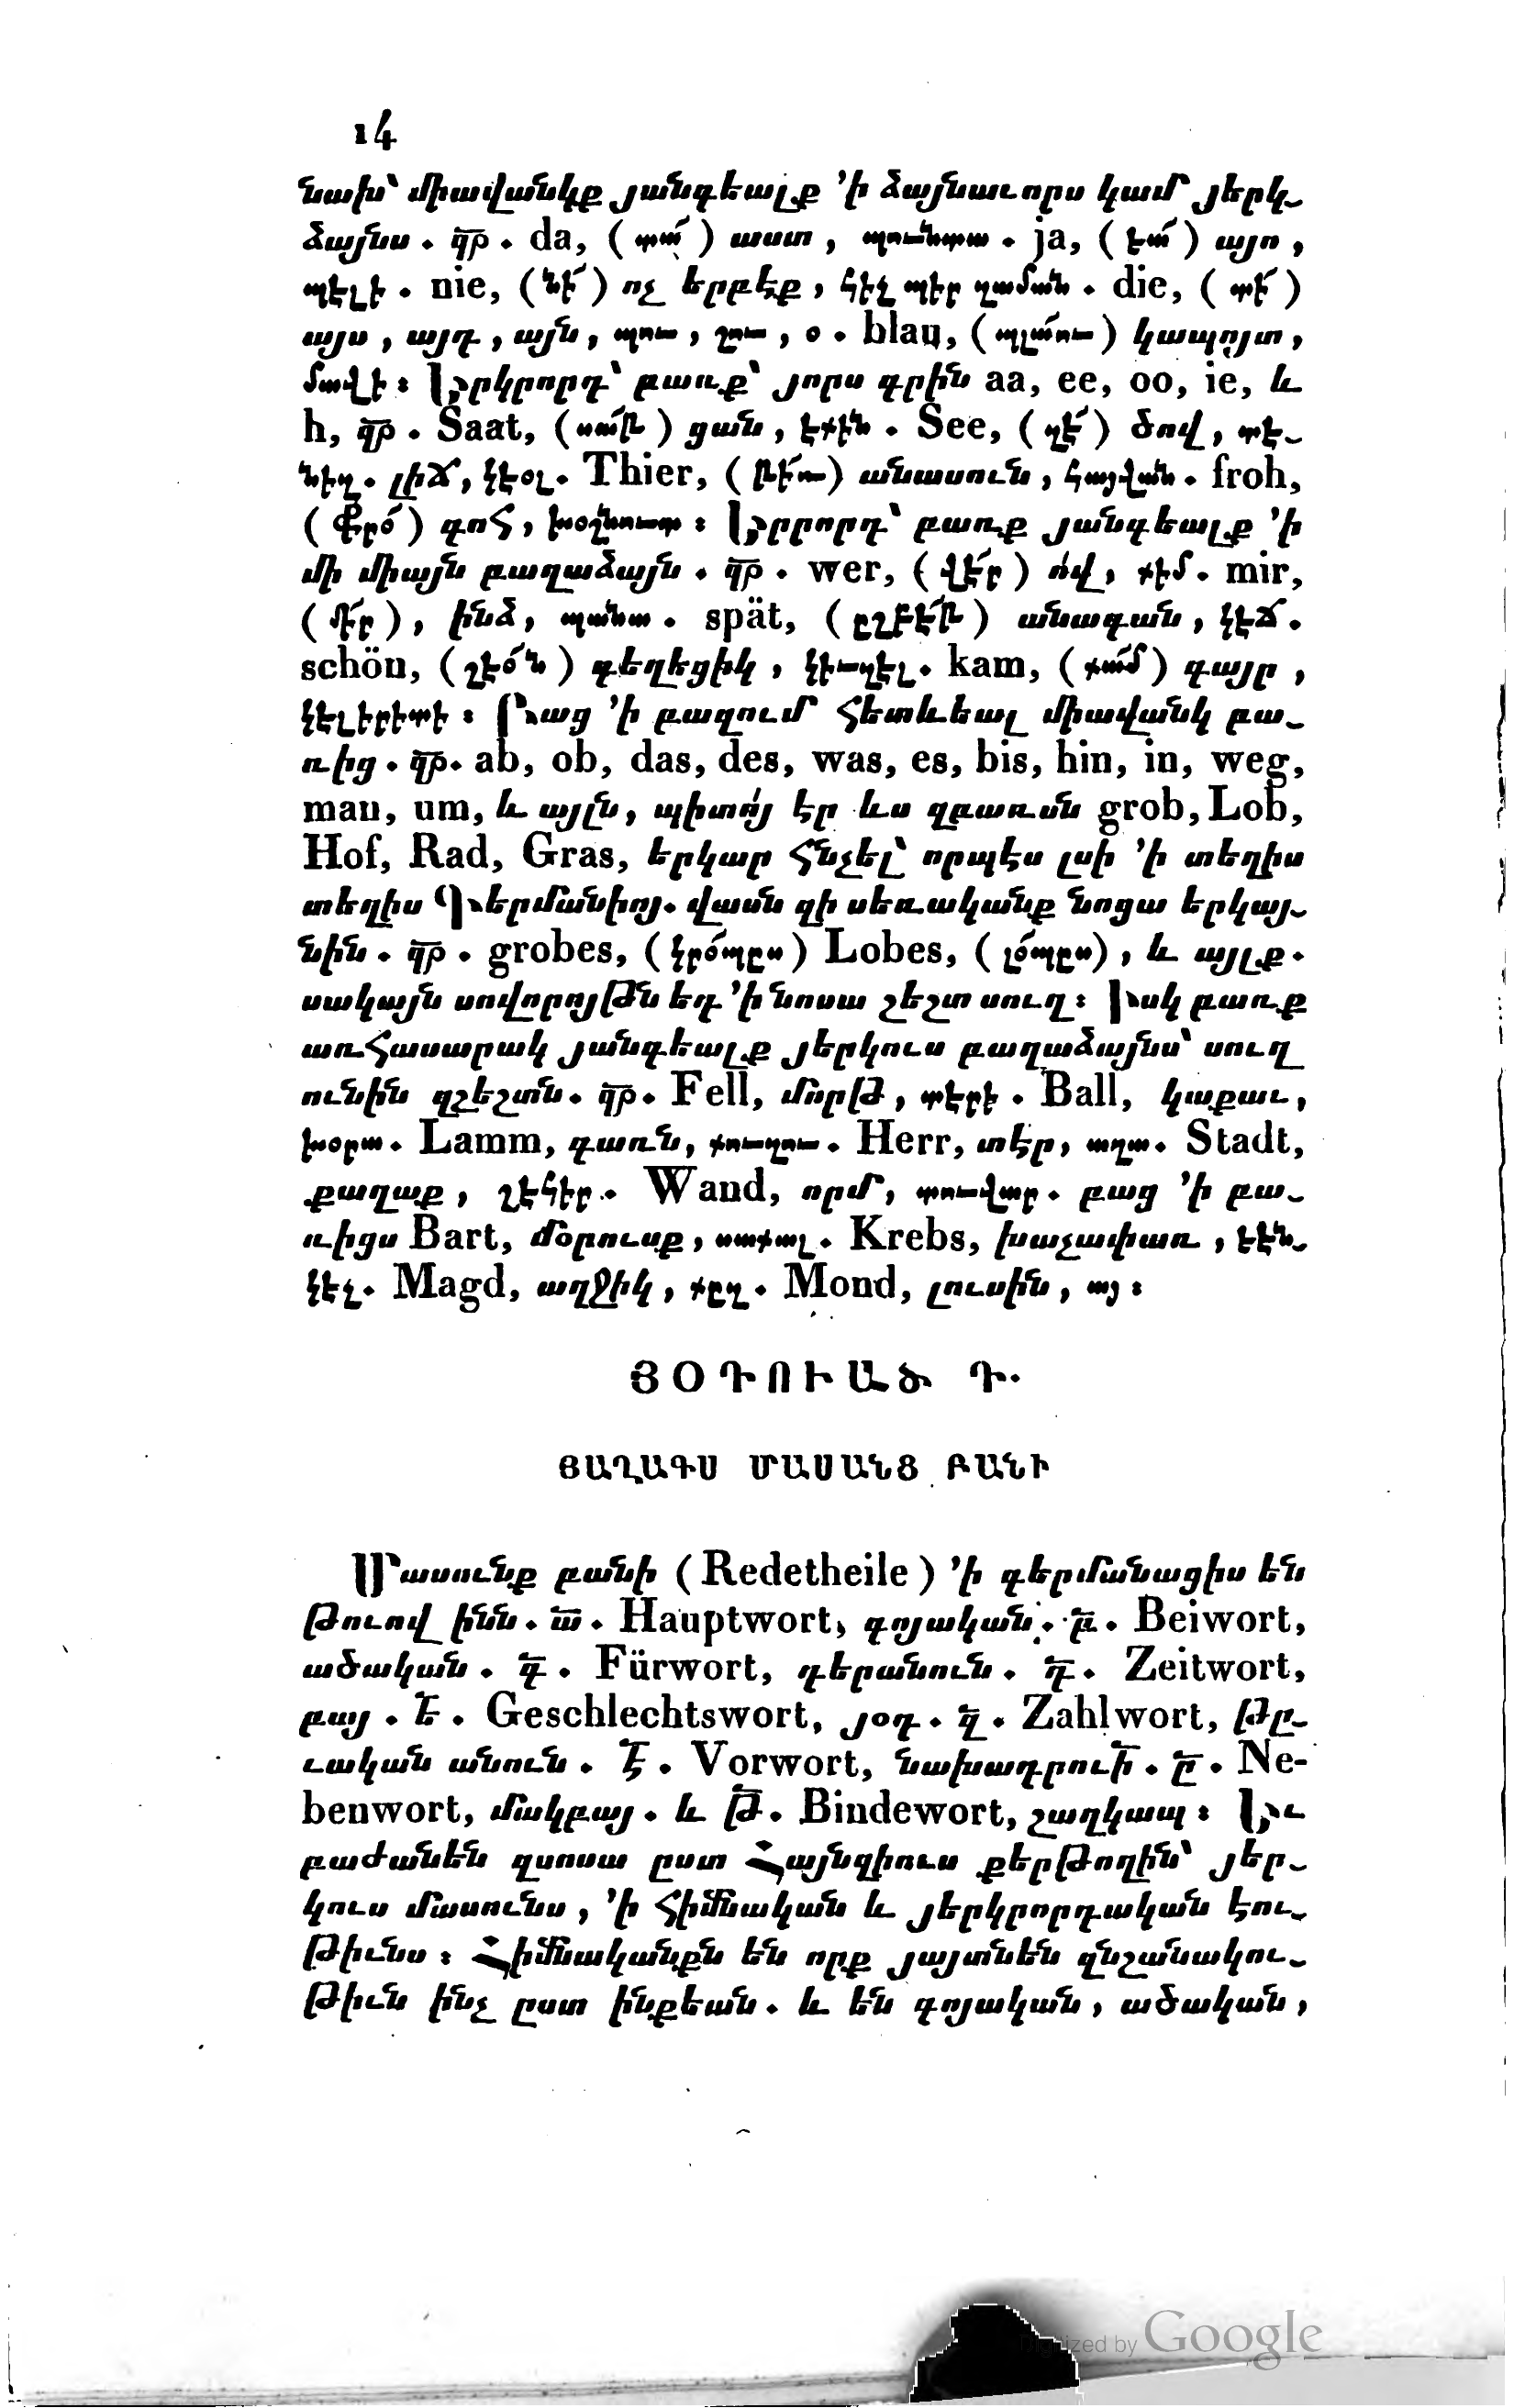 14
նախ՝ միավանկք յանգեալք ՚ի ձայնաւորս կամ յերկ-
ձայնս. զր. da, (տա՛) աստ, պունտա. ja, (եա՛) այո,
պէլի. nie, (նի՛) ոչ երբէք, հիչ պիր զաման. die, (տի՛)
այս, այդ, այն, պու, շու, օ. blau, (պլա՛ու) կապոյտ,
մավի։ Երկրորդ՝ բառք՝ յորս գրին aa, ee, oo, ie, և
h, զր. Saat, (սա՛թ) ցան, էքին. See, (զէ՛) ծով, տէ-
նիզ. լիճ, կէօլ. Thier, (թի՛ր) անասուն, հայվան. froh,
(Ֆրօ՛) գոհ, խօշնուտ։ Երրորդ՝ բառք յանգեալք ՚ի
մի միայն բաղաձայն. զր. wer, (վէ՛ր) ո՛վ, քիմ. mir,
(մի՛ր), ինձ, պանա. spät, (ըշբէ՛թ) անագան, կէճ.
schön, (շէօ՛ն) գեղեցիկ, կիւզէլ. kam, (քա՛մ) գայր,
կէլիրիտի։ Բաց ՚ի բազում հետևեալ միավանկ բա-
ռից. զր. ab, ob, das, des, was, es, bis, hin, in, weg,
man, um, և այլն, պիտո՛յ էր ևս զբառսն grob, Lob,
Hof, Rad, Gras, երկար հնչել՝ որպէս լսի ՚ի տեղիս
տեղիս Գերմանիոյ. վասն զի սեռականք նոցա երկայ-
նին. զր. grobes, (կրօ՛պըս) Lobes, (լօ՛պըս), և այլք.
սակայն սովորոյթն եդ ՚ի նոսա շեշտ սուղ։ Իսկ բառք
առհասարակ յանգեալք յերկուս բաղաձայնս՝ սուղ
ունին զշեշտն. զր. Fell, մորթ, տէրի. Ball, կաքաւ,
խօրա. Lamm, գառն, քուզու. Herr, տէր, աղա. Stadt,
քաղաք, շէհիր. Wand, որմ, տուվար. բաց ՚ի բա-
ռիցս Bart, մօրուսք, սաքալ. Krebs, խաչափառ, եէն-
կէչ. Magd, աղջիկ, քըզ. Mond, լուսին, այ։
ՅՕԴՈՒԱԾ Դ.
ՅԱՂԱԳՍ ՄԱՍԱՆՑ ԲԱՆԻ
Մասունք բանի (Redetheile) ՚ի գերմանացիս են
թուով ինն. ա. Hauptwort, գոյական. բ. Beiwort,
ածական. գ. Fürwort, դերանուն. դ. Zeitwort,
բայ. ե. Geschlechtswort, յօդ. զ. Zahlwort, թը-
ւական անուն. է. Vorwort, նախադրուի. ը. Ne-
benwort, մակբայ. և թ. Bindewort, շաղկապ։ Եւ
բաժանեն զսոսա ըստ Հայնզիուս քերթողին՝ յեր-
կուս մասունս, ՚ի հիմնական և յերկրորդական էու-
թիւնս։ Հիմնականքն են որք յայտնեն զնշանակու-
թիւն ինչ ըստ ինքեան. և են գոյական, ածական,
Digitized by Google